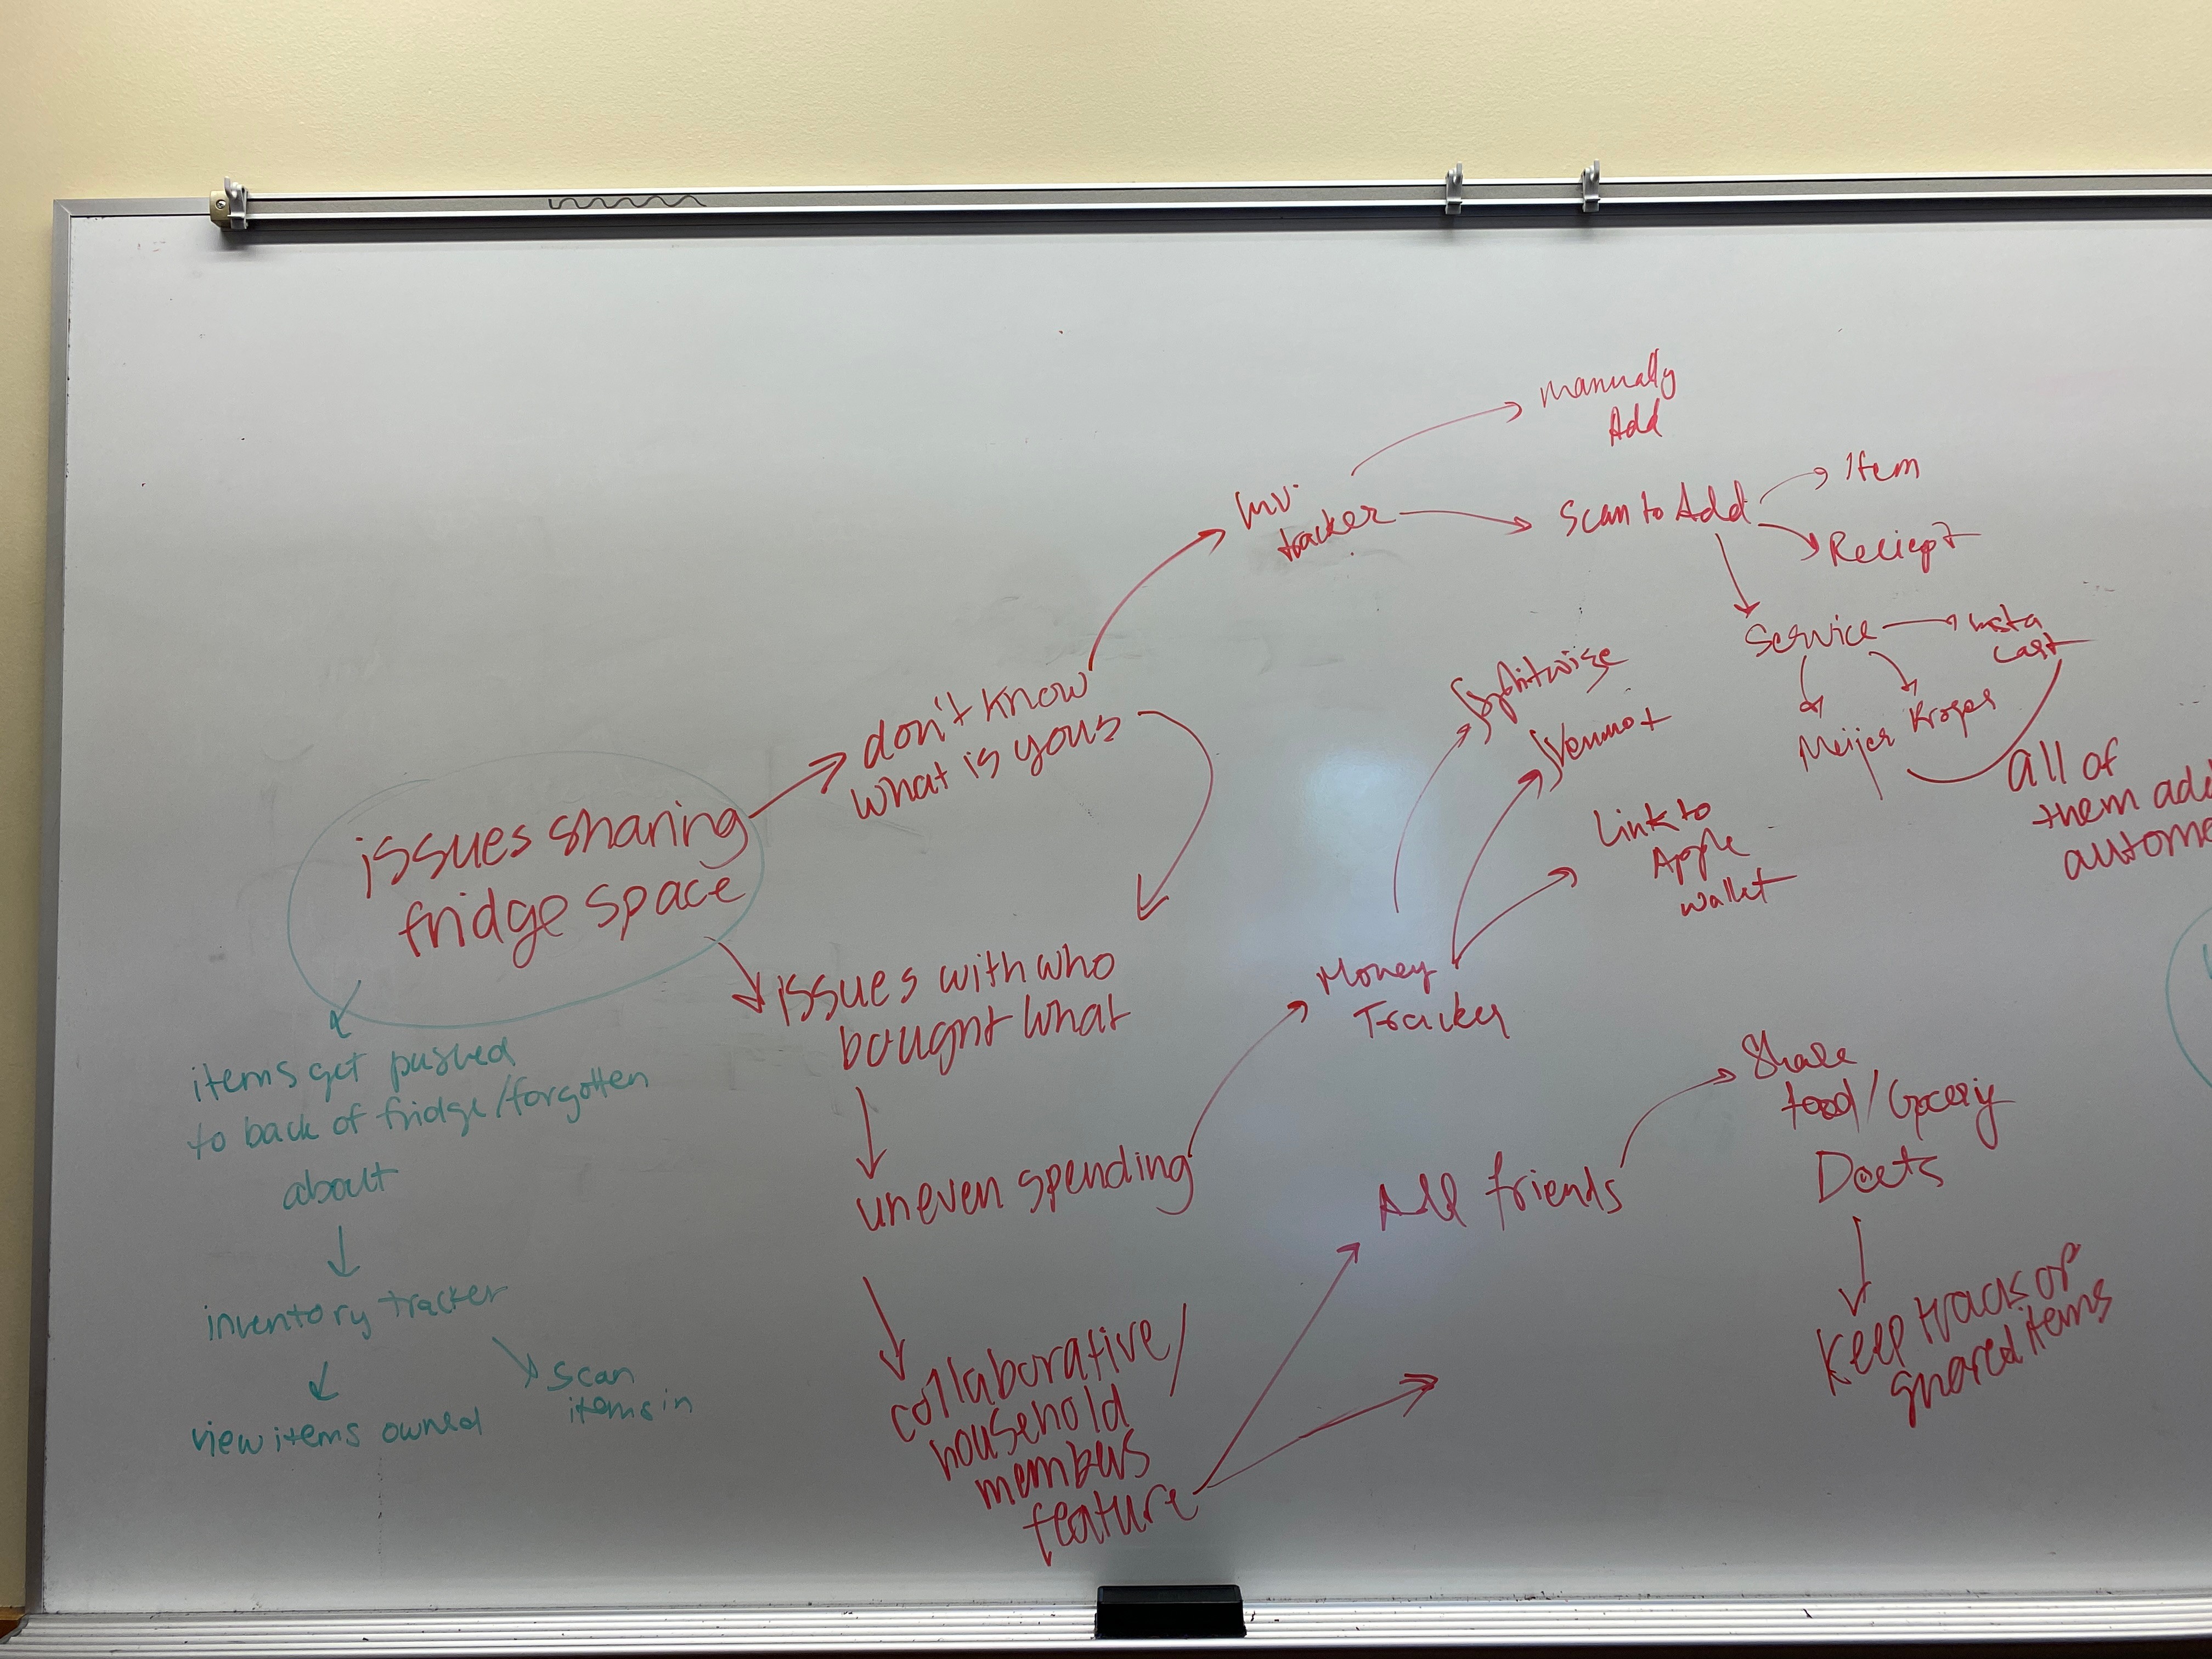 manually
Add
Inv.
tracker
Scan to Add
Item
Reciept
Service
Insta
cart
Meijer
Kroger
all of
them add
Splitwise
Venmo
Link to
Apple
wallet
don't know
what is yous
issues sharing
fridge space
issues with who
bought what
Money
Tracker
uneven spending
Add friends
Share
food/Grocery
keep track of
shared items
collaborative/
household
members
feature
items get pushed
to back of fridge/forgotten
about
inventory tracker
view items owned
scan
items in